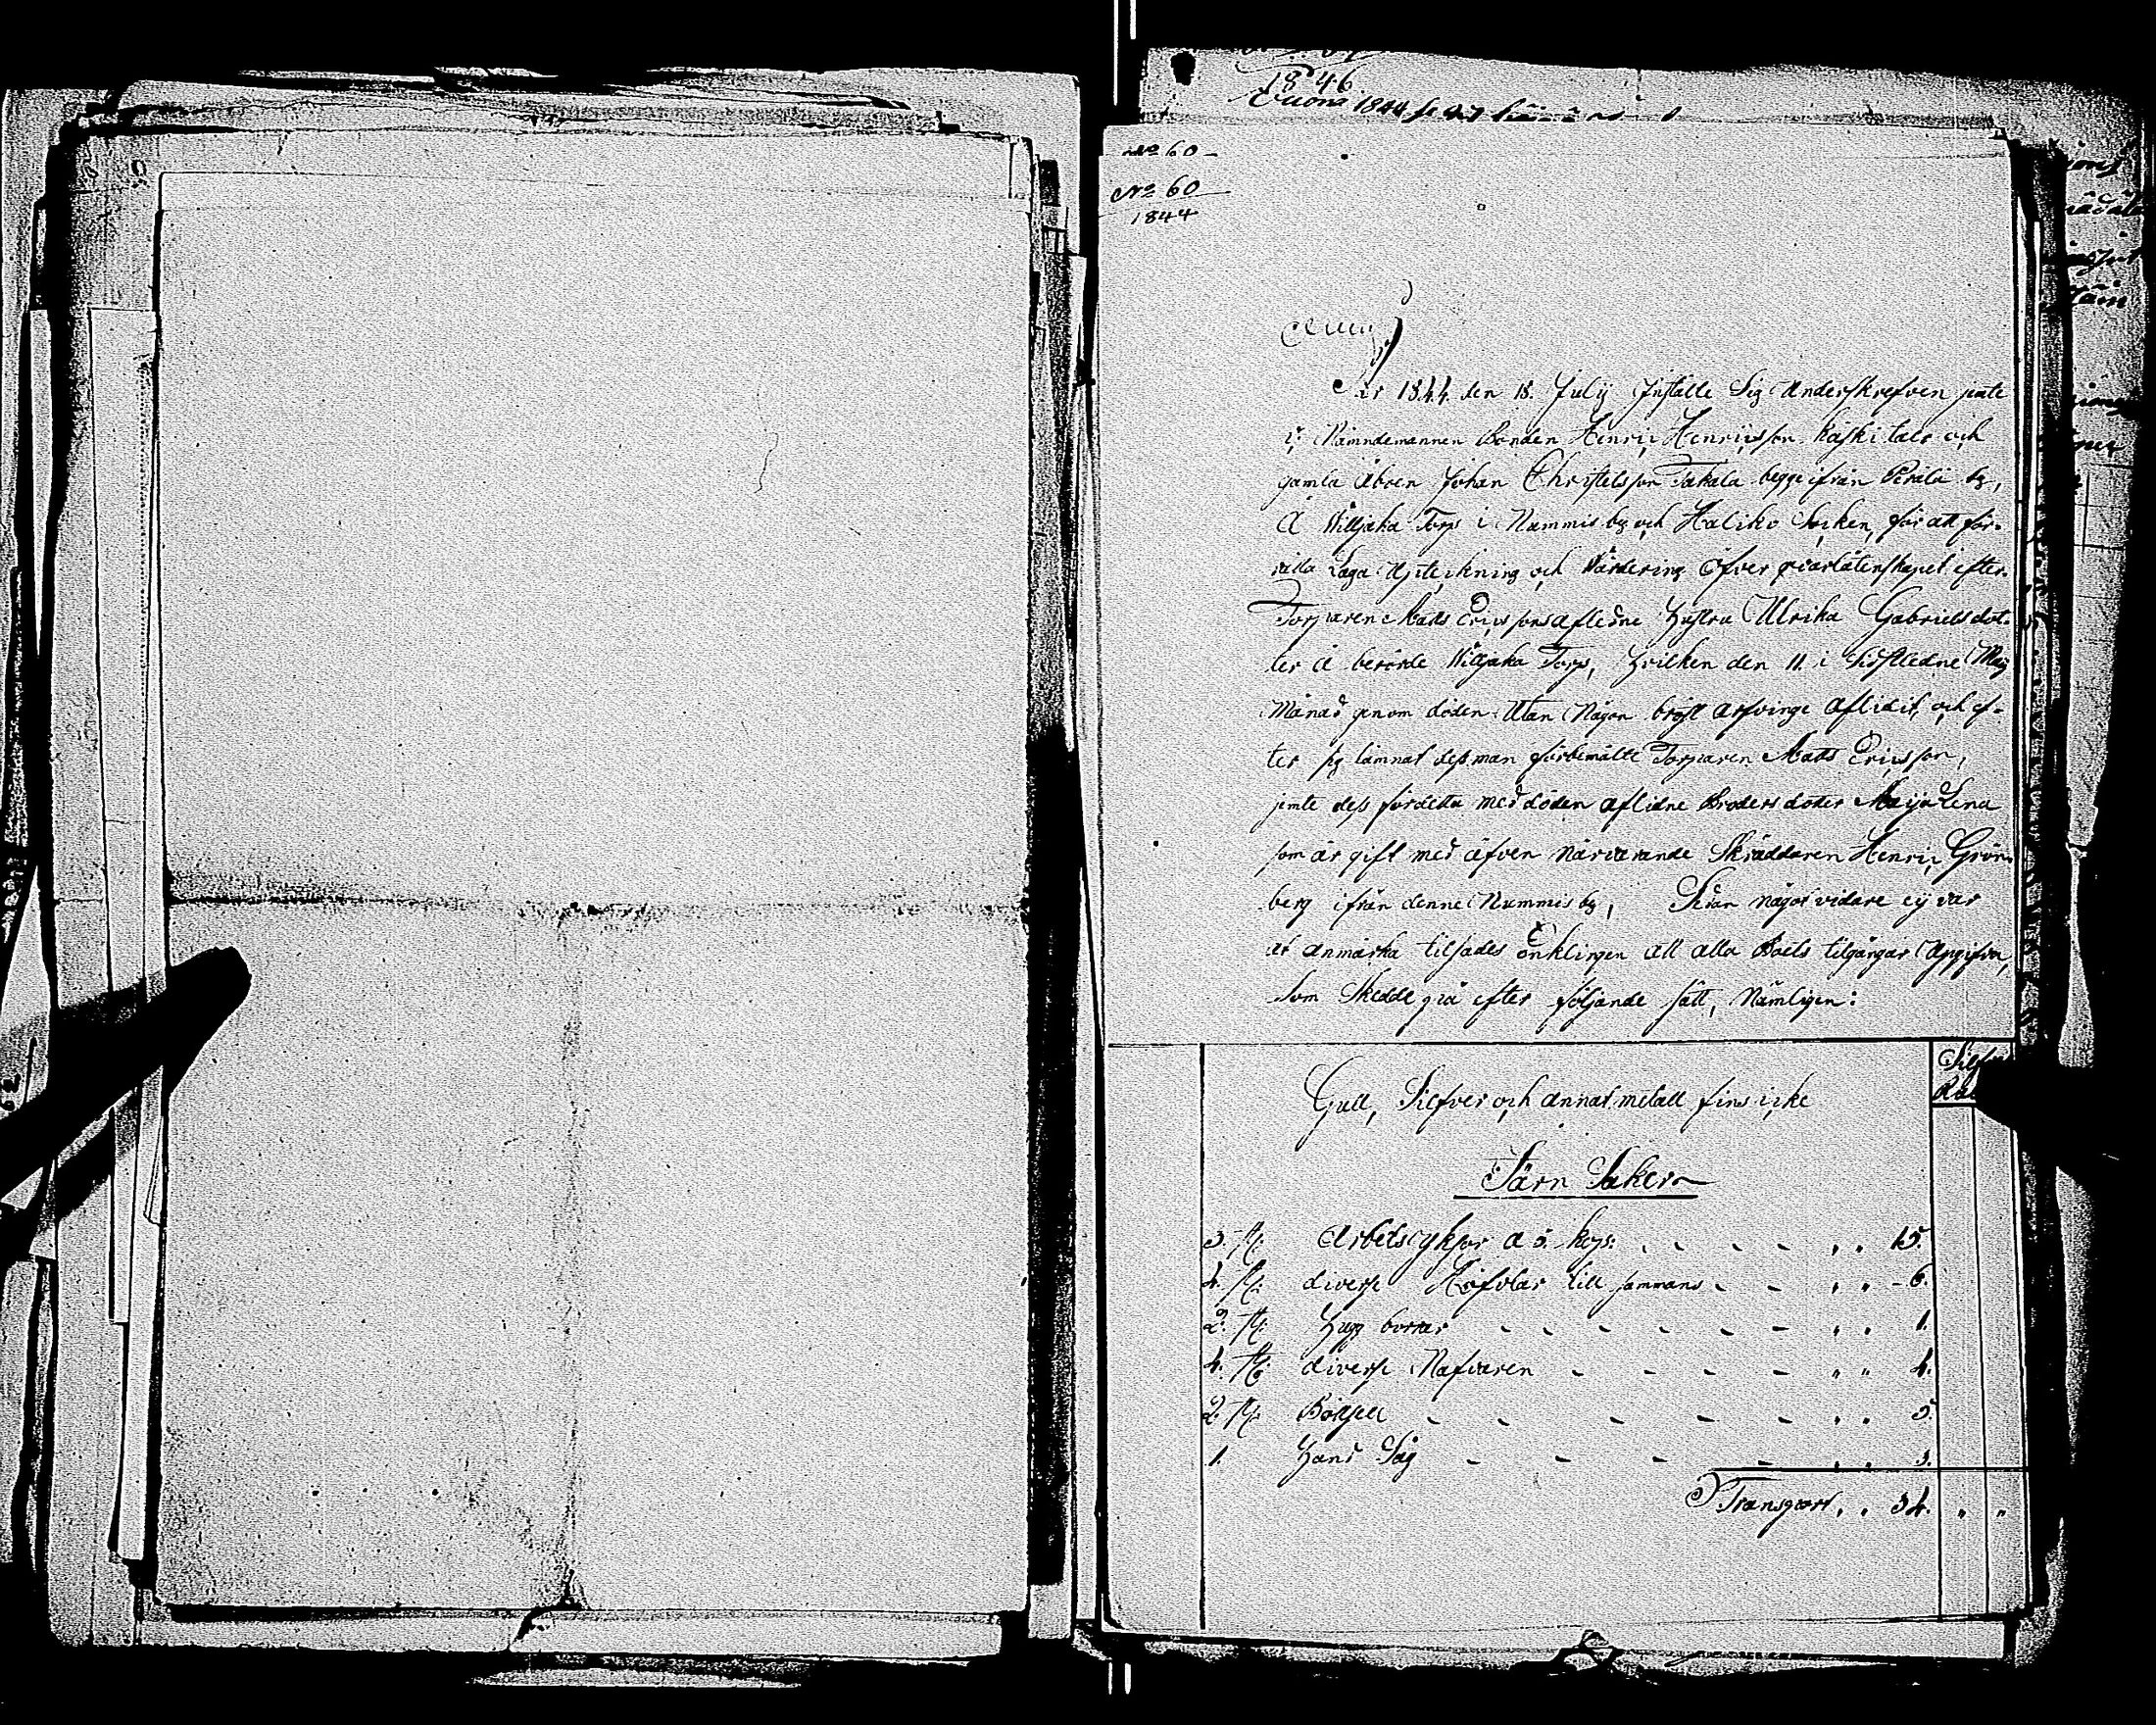 1846
Vuona 1844
No 60
No 60
1844
År 1844 den 18. Julij Instälte Sig Underskrefven jemte
Nämndemannen Bonden Henric Henricsson Kaskitalo och
gamla Åboen Johan Christelsson Takala begge ifrån Perälä by,
Å Williaka Torp i Nummis by och Haliko Socken, för att för-
rätta Laga Upteckning och Värdering Öfver qvarlåtenskapet efter
Torparen Mats Ericssons afledne Hustru Ulrika Gabrielsdot-
ter Å berörde Williaka Torp, Hvilken den 11. i Sistledne Maij
Månad genom döden Utan Någon bröst arfvinge Aflidit, och ef-
ter sig lämnat dess man förbemälte Torparen Mats Ericsson,
jemte dess fördetta med döden aflidne Broders doter Maija Lena
som är gift med äfven närvarande Skräddaren Henric Grön-
berg ifrån denne Nummis by, Sedan något vidare ej var
at anmärka tilsades Enklingen att alla Boets tilgångar Uppgifva,
Som Skedde på efter följande sätt, Nämligen:
Silf
Rub
Gull, Silfver och annat metall fins icke
Järn Saker
3. st: Arbets yxor a 5. kop: - - - - " " 15.
4. st: diverse Höfvlar till sammans - - " " - 6.
2. st: Hugg borrar - - - - - - " " 1.
4. st: diverse Nafvaren - - - - " " 4.
2. st: Bökspett - - - - - " " 5.
1. Hand Såg - - - - " " 3.
Transport " " 34. " "